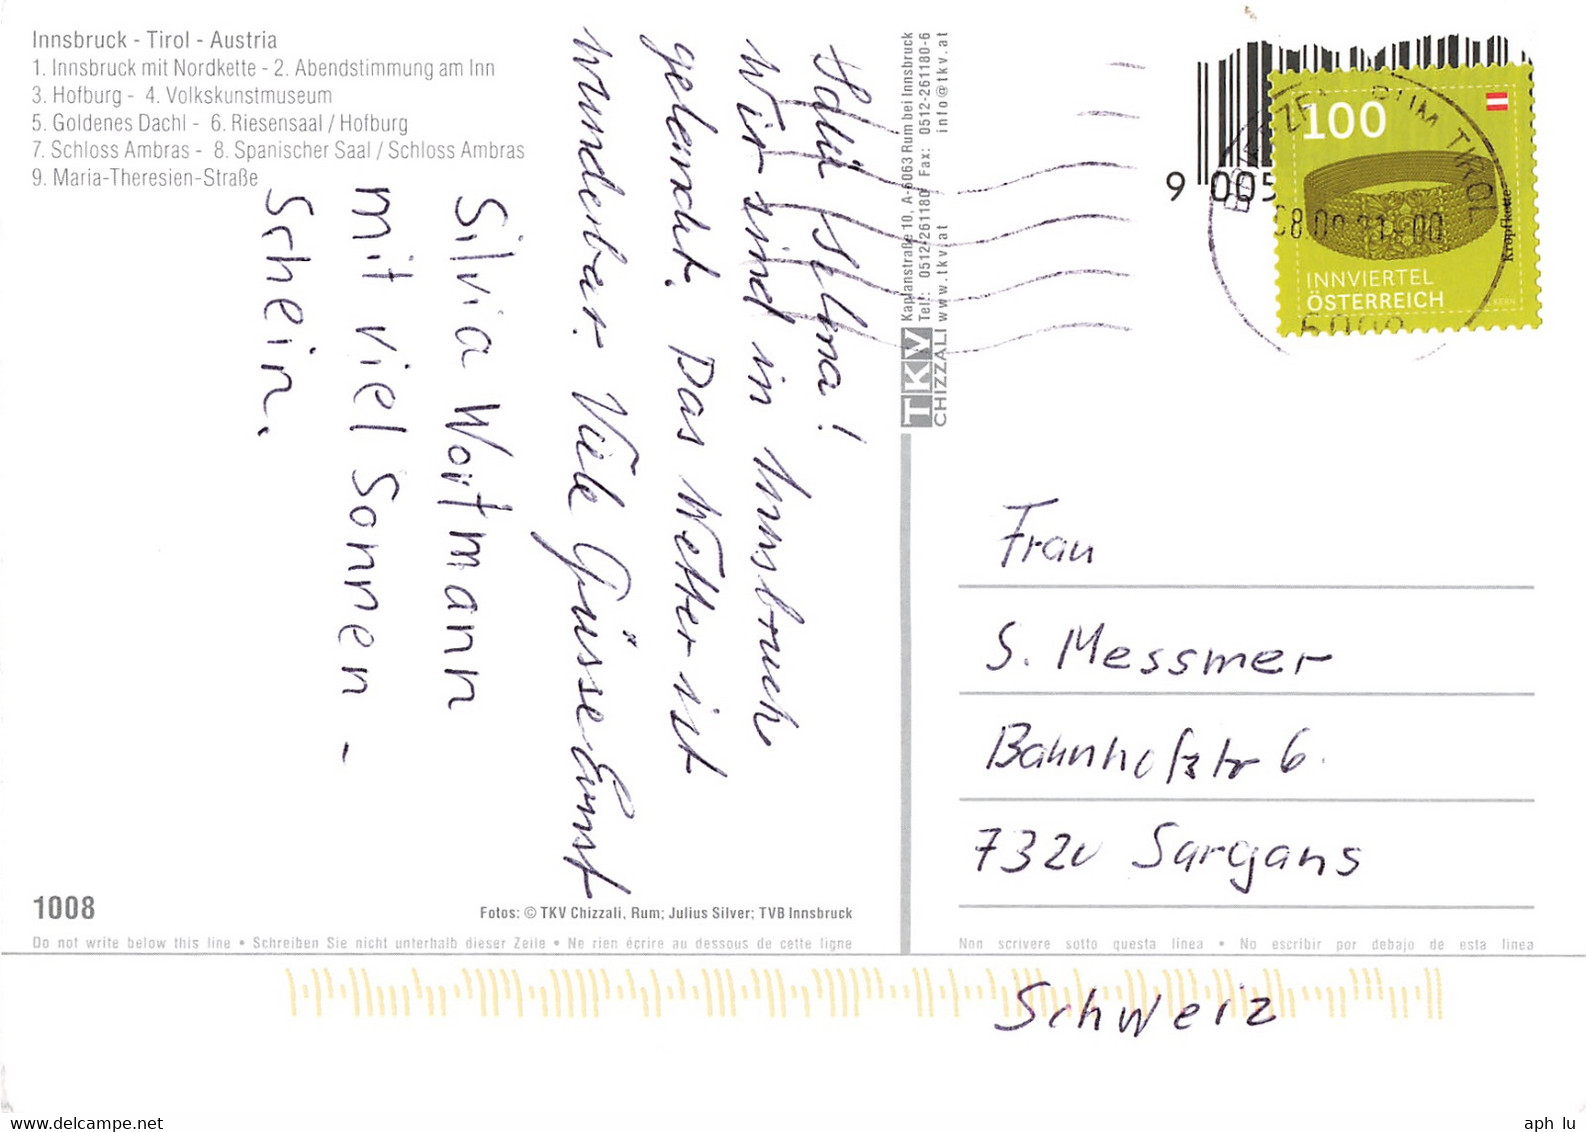 Innsbruck - Tirol - Austria
1. Innsbruck mit Nordkette - 2. Abendstimmung am Inn
3. Hofburg - 4. Volkskunstmuseum
5. Goldenes Dachl - 6. Riesensaal / Hofburg
7. Schloss Ambras - 8. Spanischer Saal / Schloss Ambras
9. Maria-Theresien-Straße
Salü Selma!
Wir sind in Innsbruck
gelandet. Das Wetter ist
wunderbar. Viele Grüsse Ernst
Silvia Wortmann
mit viel Sonnen -
Schein.
1008
Fotos: © TKV Chizzali, Rum; Julius Silver; TVB Innsbruck
Do not write below this line • Schreiben Sie nicht unterhalb dieser Zeile • Ne rien écrire au dessous de cette ligne
TKV
CHIZZALI
Kaplanstraße 10, A-6063 Rum bei Innsbruck
Tel.: 0512-261180 Fax: 0512-261180-6
www.tkv.at info@tkv.at
9 005
100
Kropfkette
INNVIERTEL
ÖSTERREICH
RUM TIROL
Frau
S. Messmer
Bahnhofstr 6.
7320 Sargans
Non scrivere sotto questa linea • No escribir por debajo de esta linea
Schweiz
delcampe.net
aph lu